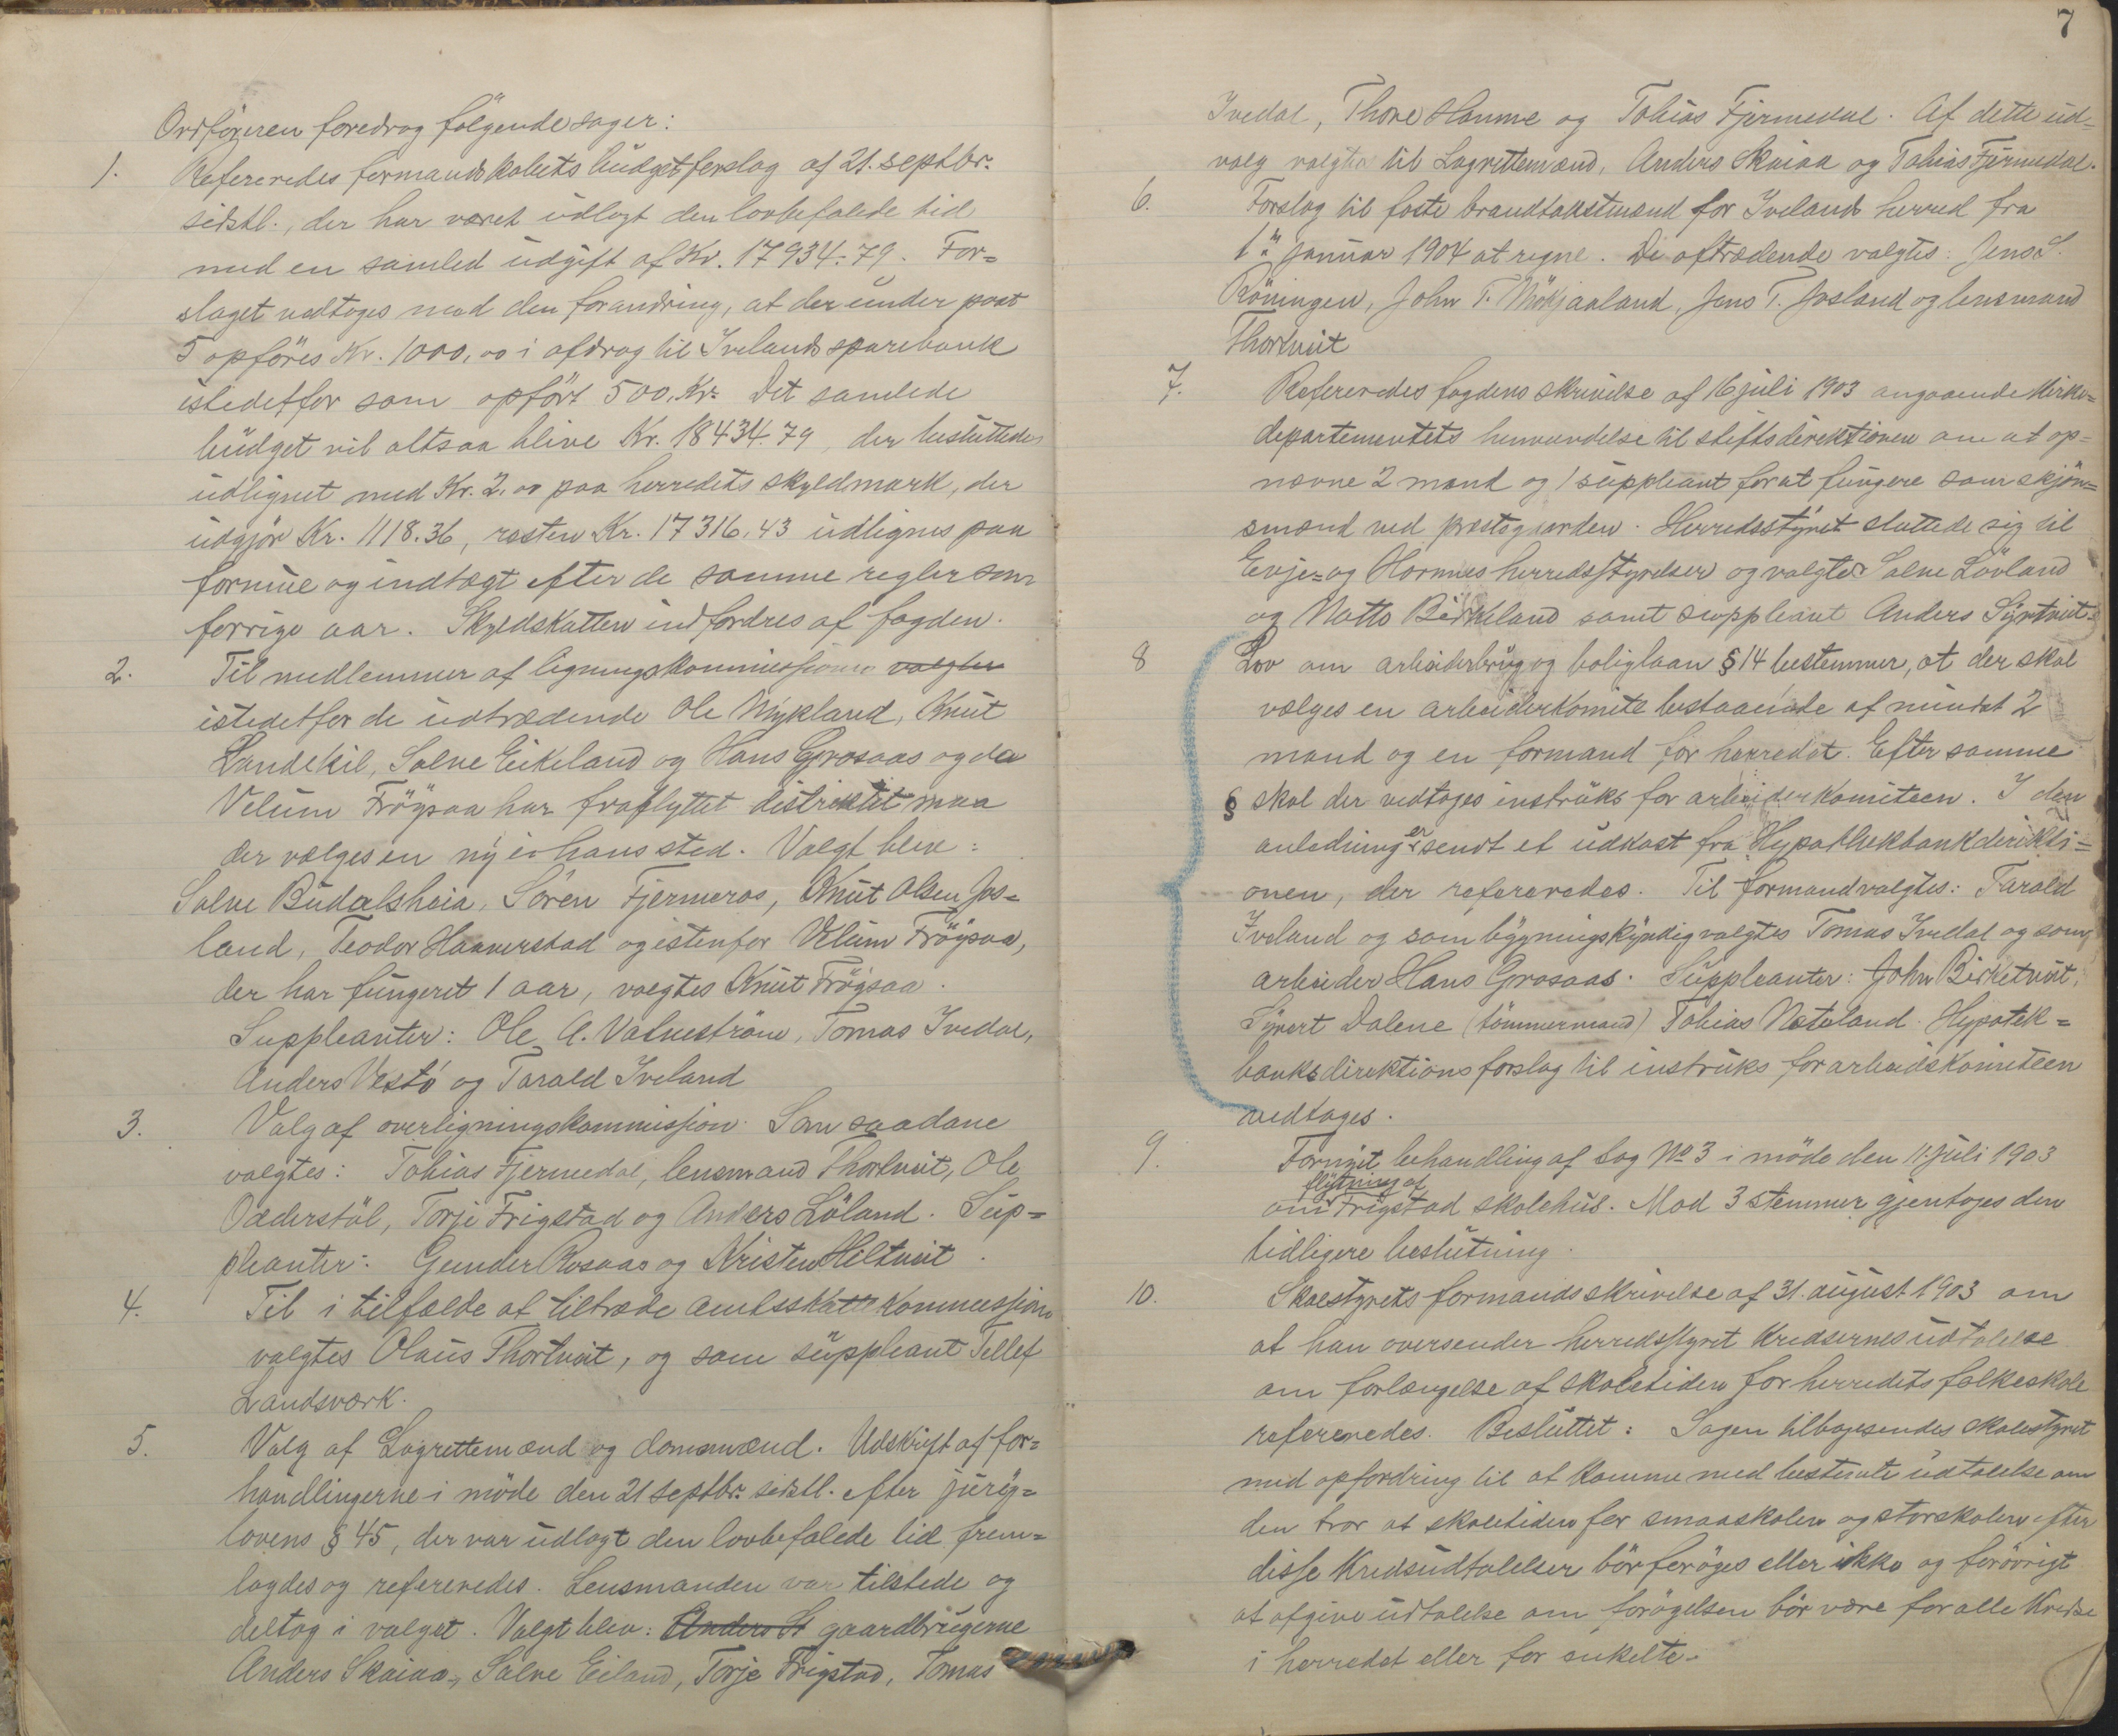 Ordføreren foredrog følgende sager:
1. Refereredes formandskabets budgetforslag af 21. septbr.
sidstl., der har været udlagt den lovbefalede tid
med en samled udgift af Kr. 17934.79. For=
slaget vedtoges med den forandring, at der under post
5 opføres Kr. 1000,00 i afdrag til Ivelands sparebank
istedetfor som opført 500, Kr. Det samlede
budget vil altsaa blive Kr. 18434.79, der besluttedes
udlignet med Kr. 2.00 paa herredets skyldmark, der
udgjør Kr. 1118.36, resten Kr. 17316.43 udlignes paa
formue og indtægt efter de samme regler som
forrige aar. Skyldskatten indfordres af fogden.
2. Til medlemmer af ligningskommissionen valgtes
istedetfor de udtrædende Ole Mykland, Knut
Landekil, Salve Eikeland og Hans Grosaas og da
Velum Frøysaa har fraflyttet distriktet maa
der vælges en ny i hans sted. Valgt blev:
Salve Budalsheia, Søren Fjermeros, Knut Olsen Jos=
land, Teodor Haaverstad og istenfor Velum Frøysaa,
der har fungeret 1 aar, valgtes Knut Frøysaa.
Suppleanter: Ole A. Vatneström, Tomas Ivedal,
Anders Vestö og Tarald Iveland
3. Valg af overligningskommission. Som saadane
valgtes: Tobias Fjermedal, lensmand Thortveit, Ole
Odderstöl, Torje Frigstad og Anders Löland. Sup=
pleanter: Gunder Rosaas og Kristen Hiltveit.
4. Til i tilfælde at tiltræde amtsskattekommission
valgtes Olaus Thortveit, og som suppleant Tellef
Landsværk.
5. Valg af Lagrettemænd og domsmænd. Udskrift af for=
handlingerne i møde den 21 septbr. sidstl. efter jury=
lovens § 45, der var udlagt den lovbefalede tid frem=
lagdes og refereredes. Lensmanden var tilstede og
deltog i valget. Valgt blev: Anders St gaardbrugerne
Anders Skaiaa, Salve Eiland, Torje Frigstad, Tomas
7
Ivedal, Thore Hamme og Tobias Fjermedal. Af dette ud=
valg valgtes til Lagrettemænd, Anders Skaiaa og Tobias Fjermedal.
6. Forslag til faste brandtakstmænd for Ivelands herred fra
1ste januar 1904 at regne. De aftrædende valgtes: Jens S.
Röningen, John T. Mökjaaland, Jens T. Josland og lensmand
Thortveit
7. Refereredes fogdens skrivelse af 16 juli 1903 angaaende Kirke=
departementets henvendelse til stiftsdirektionen om at op=
nævne 2 mænd og 1 suppleant for at fungere som skjøn=
smænd ved præstegaarden. Herredsstyret sluttede sig til
Evje= og Hornnes herredsstyrelser og valgtes Salve Lövland
og Matts Birkeland samt suppleant Anders Syrtveit.
8 Lov om arbeiderbrug og boliglaan § 14 bestemmer, at der skal
vælges en arbeiderkomite bestaaende af mindst 2
mand og en formand for herredet. Efter samme
§ skal der vedtages instruks for arbeiderkomiteen. I den
anledning er sendt et udkast fra Hypothekbankdirekti=
onen, der refereredes. Til formand valgtes: Tarald
Iveland og som bygningskyndig valgtes Tomas Ivedal og som
arbeider Hans Grosaas. Suppleanter: John Birketveit,
Syvert Dalene (tømmermand) Tobias Nateland. Hypotek=
banksdirektions forslag til instruks for arbeidskomiteen
vedtages.
9. Fornyet behandling af sag No 3 i møde den 11. juli 1903
om flytning af Frigstad skolehus. Mod 3 stemmer gjentoges den
tidligere beslutning.
10. Skolestyrets formands skrivelse af 31. august 1903 om
at han oversender herredsstyret Kredsernes udtalelse
om forlængelse af skoletiden for herredets folkeskole
refereredes. Besluttet: Sagen tilbagesendes skolestyret
med opfordring til at komme med bestemte udtalelse om
den tror at skoletiden for smaaskolen og storskolen efter
disse Kredsudtalelser bør forøges eller ikke og forøvrigt
at afgive udtalelse om forøgelsen bør være for alle Kredse
i herredet eller for enkelte.